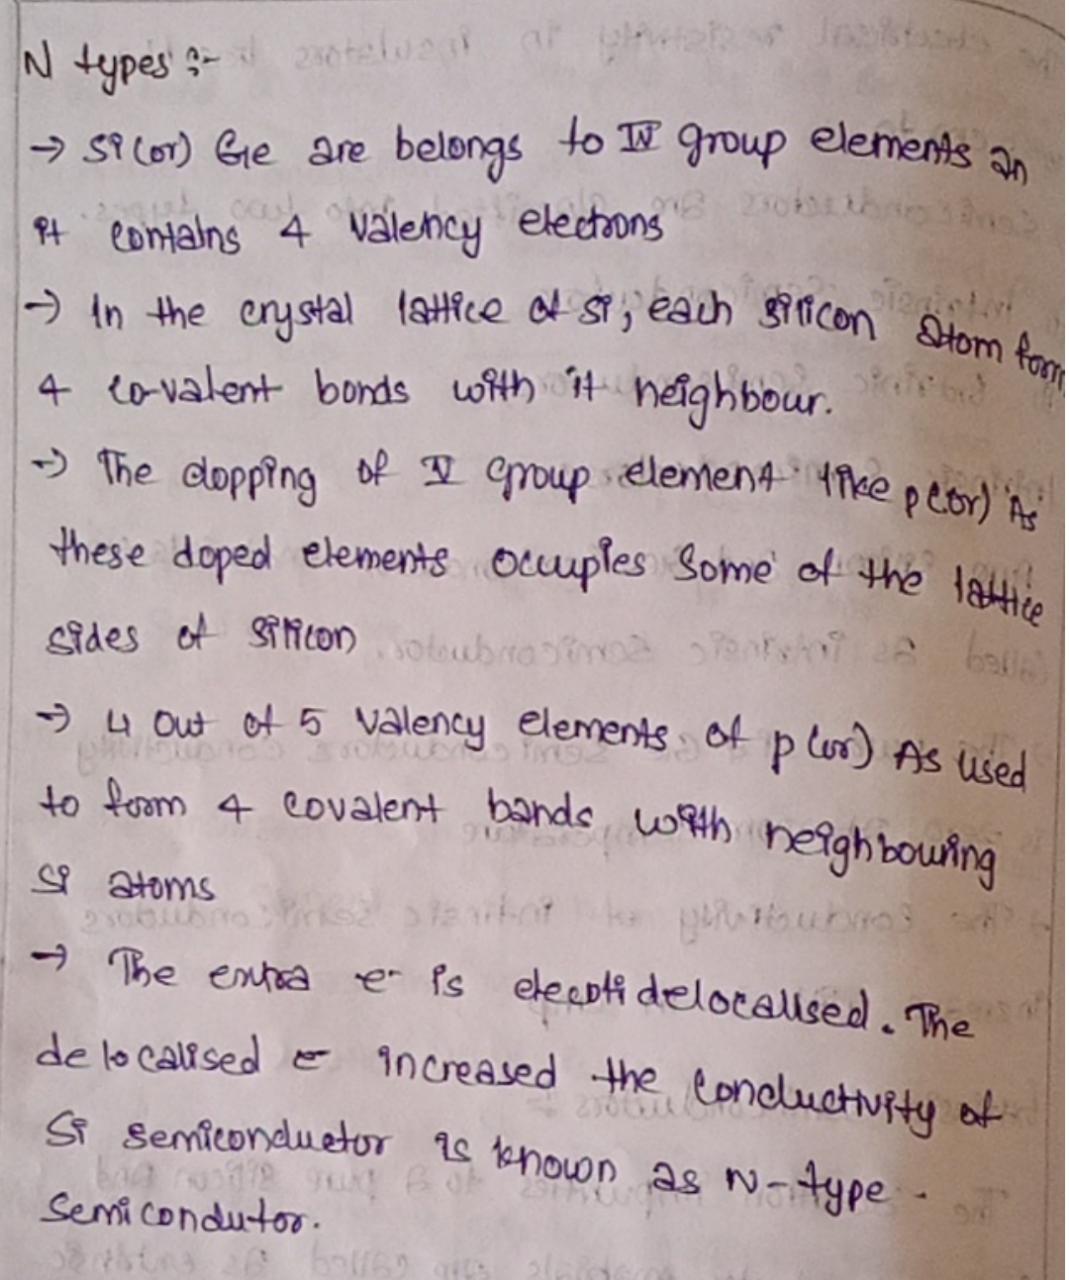 N types :-
→ Si (or) Ge are belongs to IV group elements an
it contains 4 valency electrons
→ In the crystal lattice of Si, each silicon atom form
4 co-valent bonds with it neighbour.
→ The dopping of V group element like p (or) As
these doped elements occupies some of the lattice
sides of silicon
→ 4 out of 5 valency elements of p (or) As used
to form 4 covalent bands with neighbouring
Si atoms
→ The extra e- is delocalised. The
delocalised e- increased the conductivity of
Si semiconductor is known as N-type.
Semicondutor.